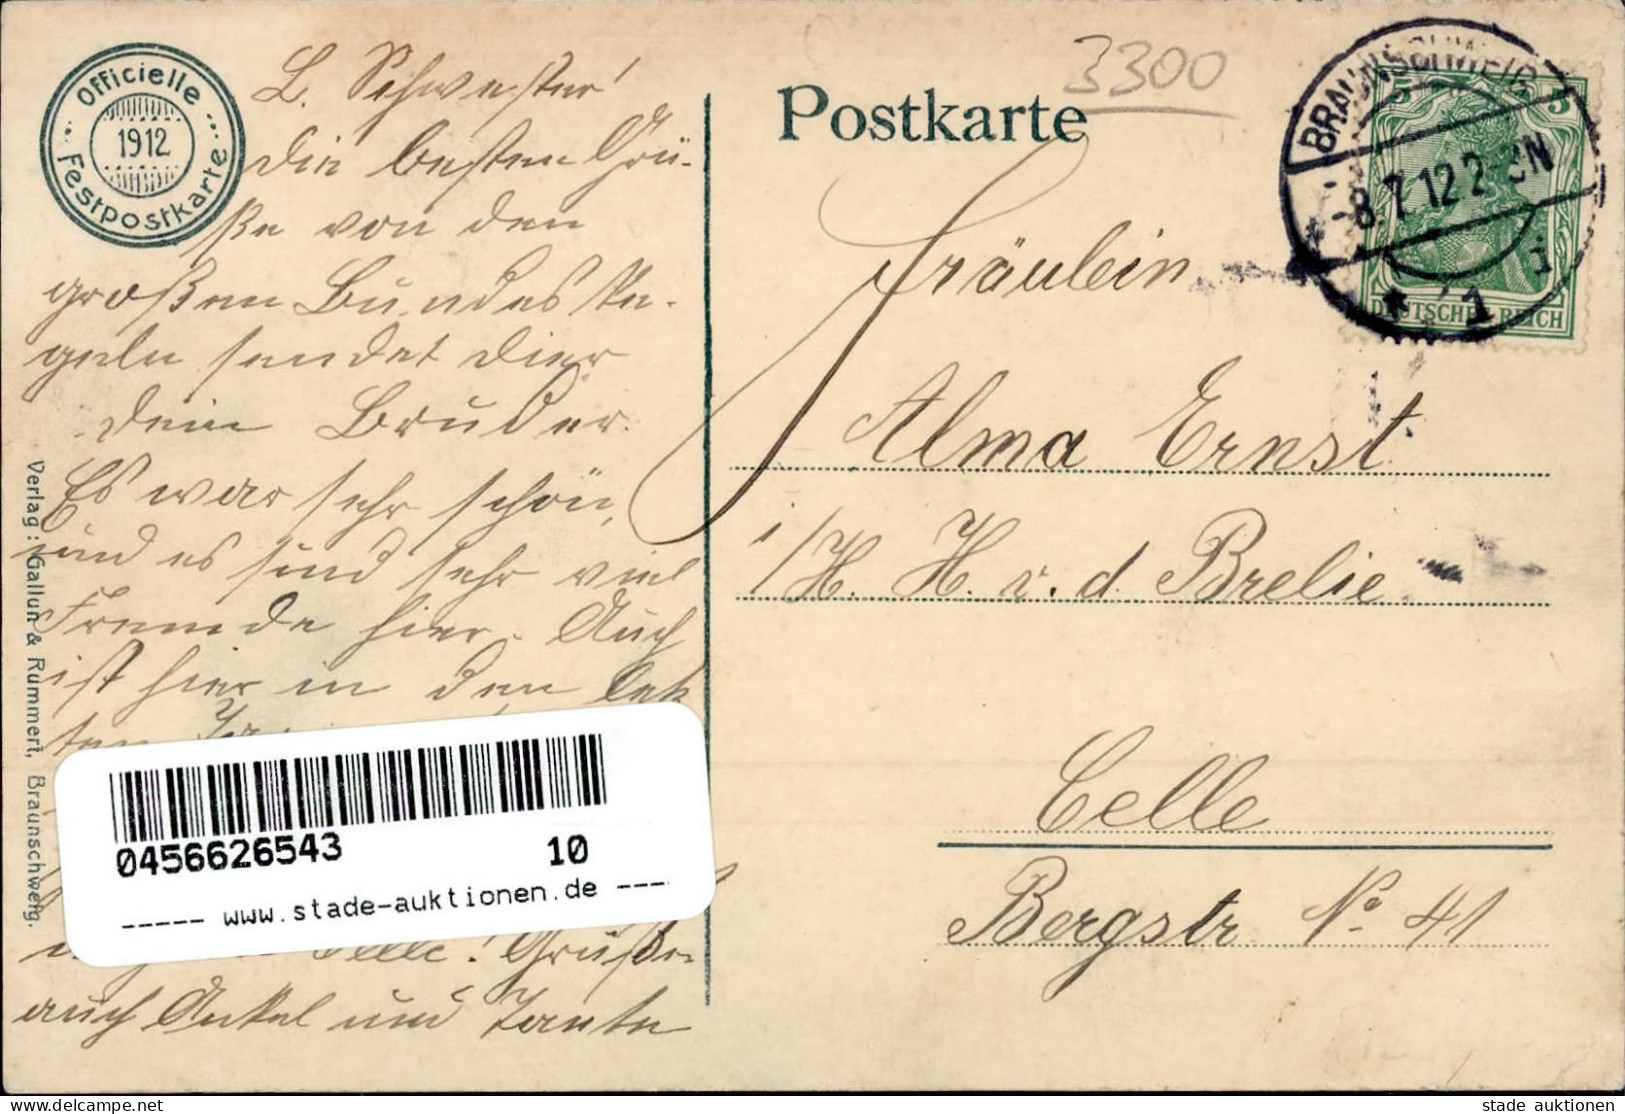 Officielle
1912
Festpostkarte
L. Schwester!
Die besten Grü-
ße von den
großen Bundes Ke-
geln sendet Dier
Dein Bruder.
Es war sehr schön,
und es sind sehr viel
Fremde hier. Auch
ist hier in den letz
ten
Celle! Grüße
auch Onkel und Tante
Verlag: Gallun & Rummert, Braunschweig.
0456626543 10
----- www.stade-auktionen.de ----
Postkarte
3300
BRAUNSCHWEIG
-8.7.12 2-3N
* 1 i
5 5
DEUTSCHES REICH
Fräulein
Alma Ernst
i/H. H. v. d. Brelie
Celle
Bergstr. No. 41
www.delcampe.net
stade auktionen